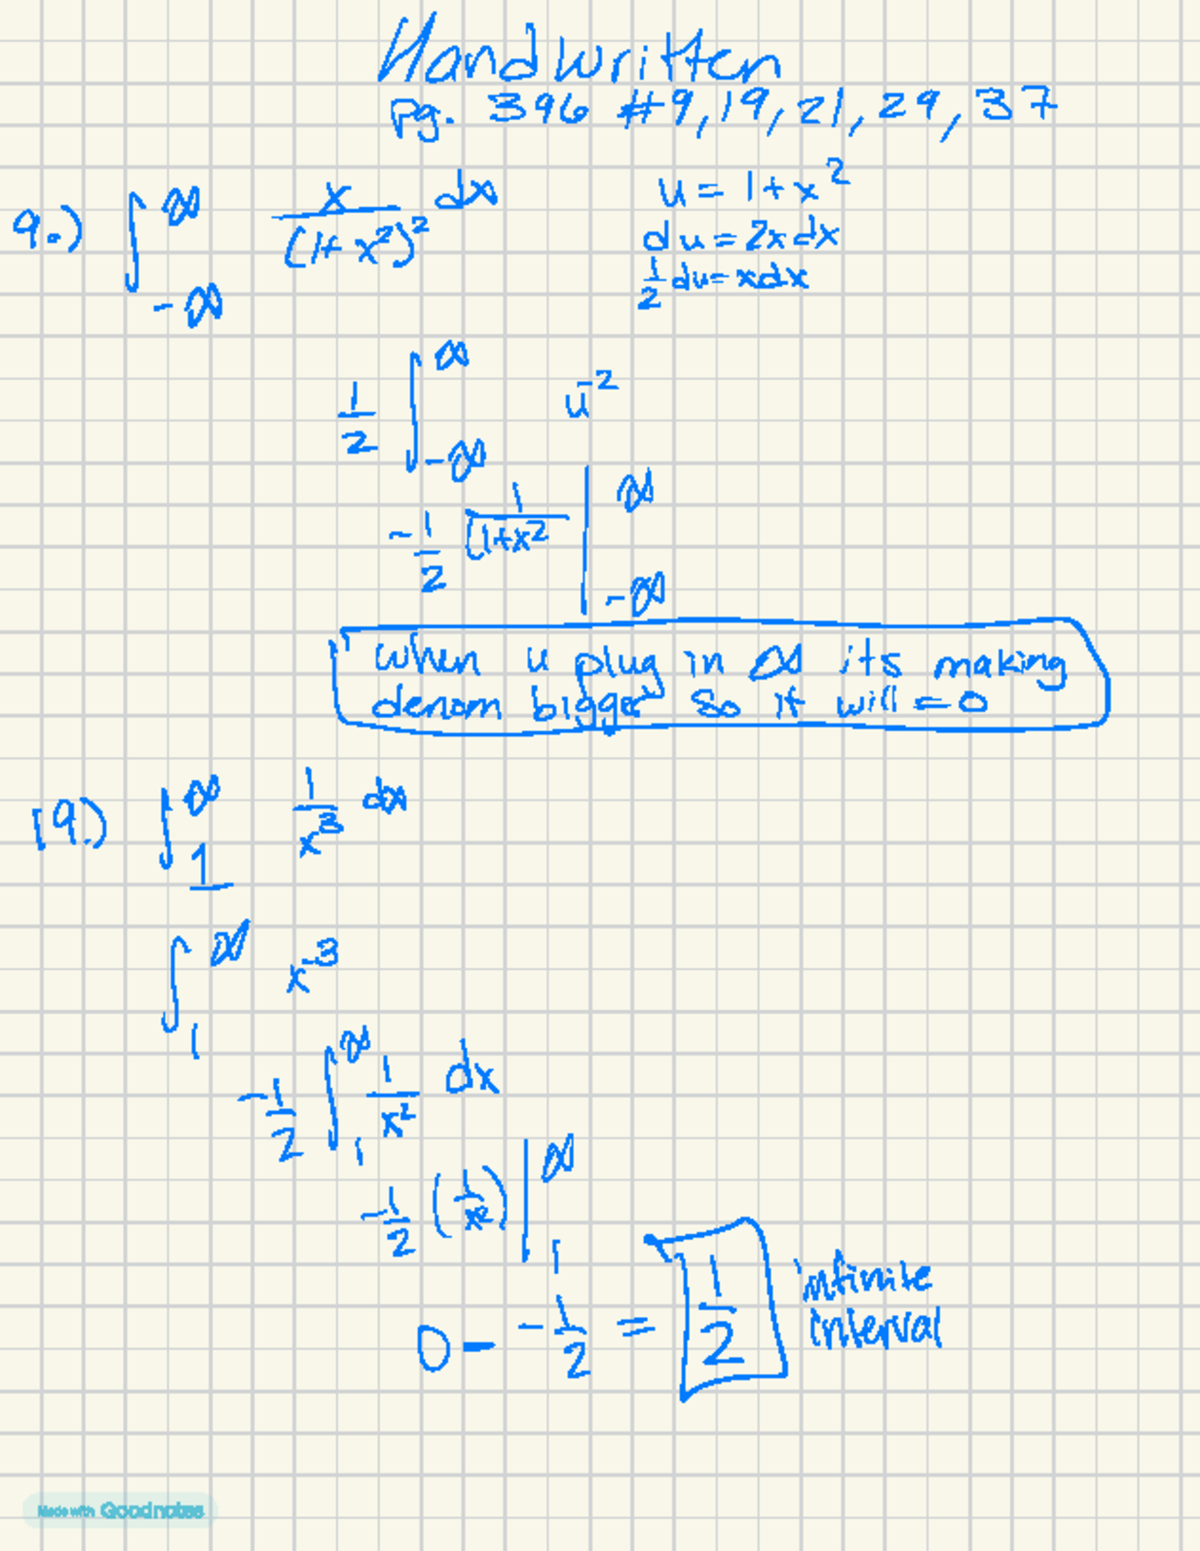 Handwritten
Pg. 396 #9, 19, 21, 29, 37
9.) ∫_{-∞}^{∞} x/(1+x²)² dx
u = 1+x²
du = 2x dx
1/2 du = xdx
1/2 ∫_{-∞}^{∞} u^{-2}
-1/2 1/(1+x² |_{-∞}^{∞}
when u plug in ∞ its making
denom bigger so it will = 0
19.) ∫_{1}^{∞} 1/x³ dx
∫_{1}^{∞} x^{-3}
-1/2 ∫_{1}^{∞} 1/x² dx
-1/2 (1/x²) |_{1}^{∞}
0 - -1/2 = 1/2
infinite
interval
Made with Goodnotes